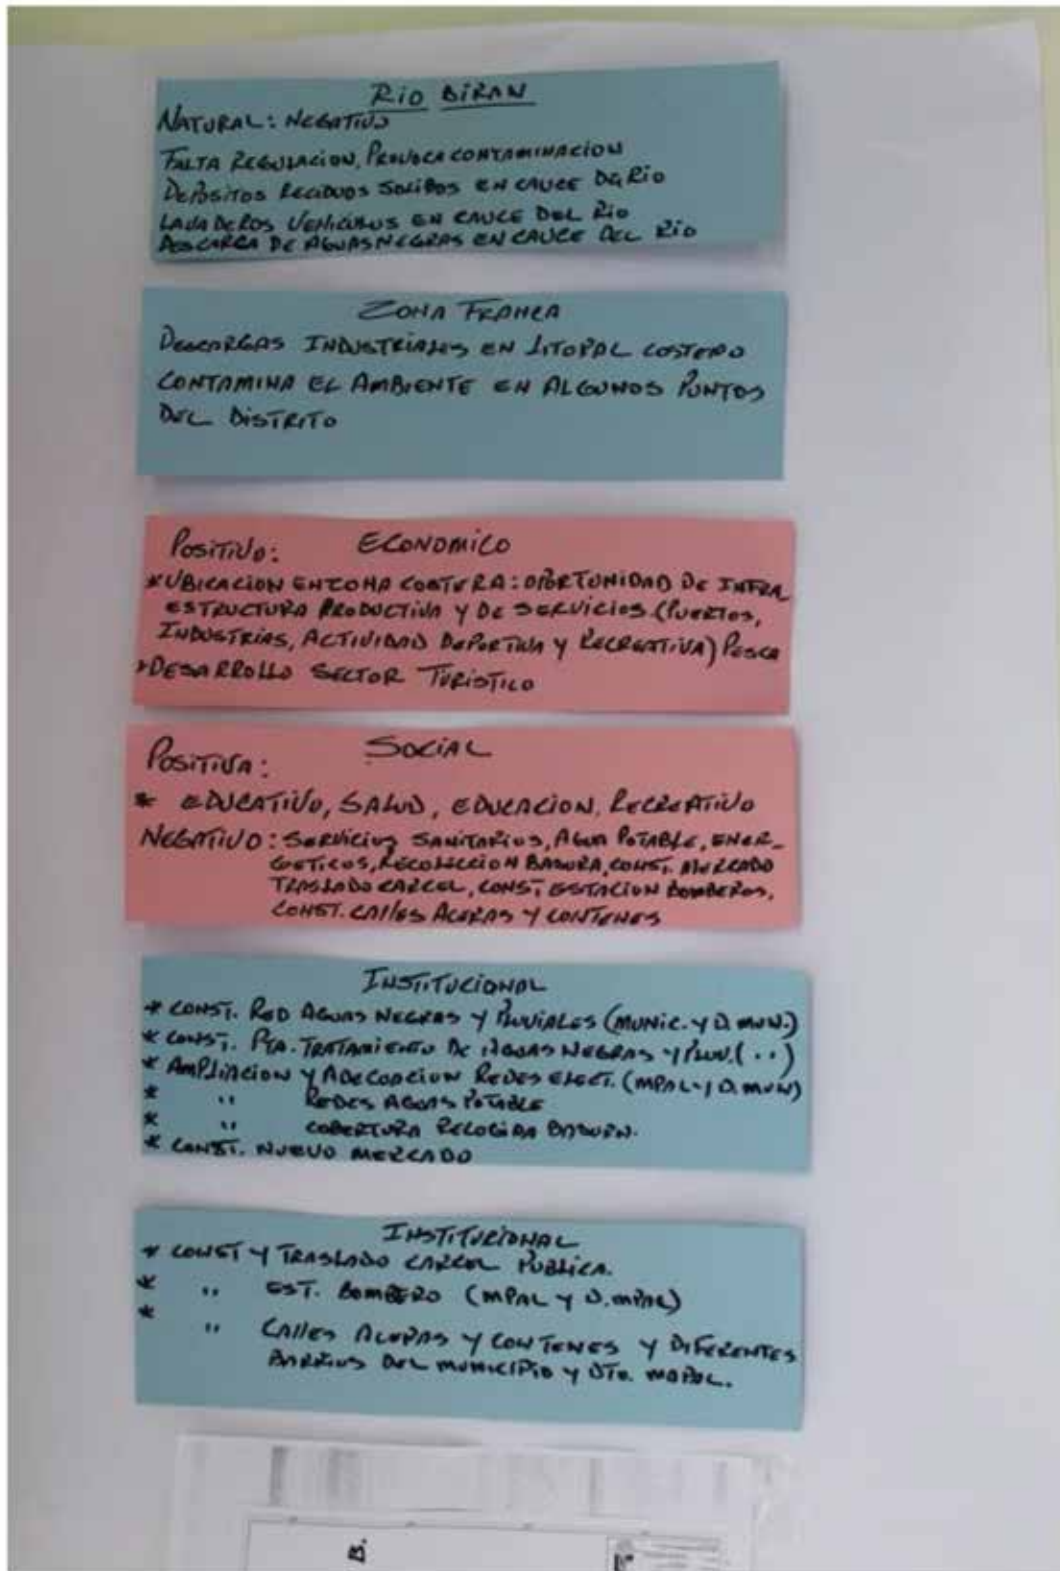 RIO BIRAN
NATURAL: NEGATIVO
FALTA REGULACION, PROVOCA CONTAMINACION
DEPOSITOS RECIDUOS SOLIDOS EN CAUCE DEL RIO
LAVADEROS VEHICULOS EN CAUCE DEL RIO
DESCARGA DE AGUAS NEGRAS EN CAUCE DEL RIO
ZONA FRANCA
DESCARGAS INDUSTRIALES EN LITORAL COSTERO
CONTAMINA EL AMBIENTE EN ALGUNOS PUNTOS
DEL DISTRITO
POSITIVO: ECONOMICO
*UBICACION EN ZONA COSTERA: OPORTUNIDAD DE INFRA
ESTRUCTURA PRODUCTIVA Y DE SERVICIOS (PUERTOS,
INDUSTRIAS, ACTIVIDAD DEPORTIVA Y RECREATIVA) PESCA
*DESARROLLO SECTOR TURISTICO
POSITIVA: SOCIAL
* EDUCATIVO, SALUD, EDUCACION, RECREATIVO
NEGATIVO: SERVICIOS SANITARIOS, AGUA POTABLE, ENER-
GETICOS, RECOLECCION BASURA, CONST. MERCADO
TRASLADO CARCEL, CONST, ESTACION BOMBEROS,
CONST. CALLES ACERAS Y CONTENES
INSTITUCIONAL
* CONST. RED AGUAS NEGRAS Y PLUVIALES (MUNIC. Y D. MUN.)
* CONST. PTA. TRATAMIENTO DE AGUAS NEGRAS Y PLUV. (..)
* AMPLIACION Y ADECUACION REDES ELECT. (MPAL Y D. MUN)
* " REDES AGUAS POTABLE
* " COBERTURA RECOGIDA BASURA.
* CONST. NUEVO MERCADO
INSTITUCIONAL
* CONST Y TRASLADO CARCEL PUBLICA.
* " EST. BOMBERO (MPAL Y D. MPAL)
* " CALLES ACERAS Y CONTENES Y DIFERENTES
BARRIOS DEL MUNICIPIO Y DTO. MPAL.
B.